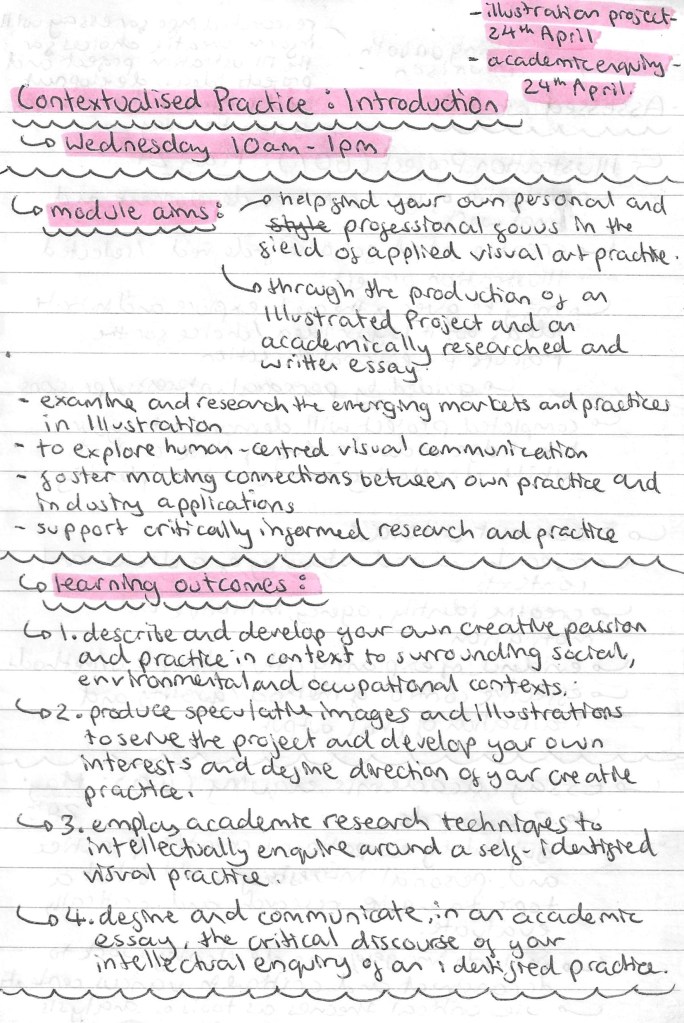 - illustration project -
24th April
- academic enquiry -
24th April.
Contextualised Practice : Introduction
Wednesday 10am - 1pm
module aims :
help find your own personal and
style professional focus in the
field of applied visual art practise.
through the production of an
Illustrated Project and an
academically researched and
written essay.
- examine and research the emerging markets and practices
in Illustration
- to explore human-centred visual communication
- foster making connections between own practice and
industry applications
- support critically informed research and practice
learning outcomes :
1. describe and develop your own creative passion
and practice in context to surrounding social,
environmental and occupational contexts.
2. produce speculative images and Illustrations
to serve the project and develop your own
interests and define direction of your creative
practice.
3. employ academic research techniques to
intellectually enquire around a self-identified
visual practice.
4. define and communicate, in an academic
essay, the critical discourse of your
intellectual enquiry of an identified practice.